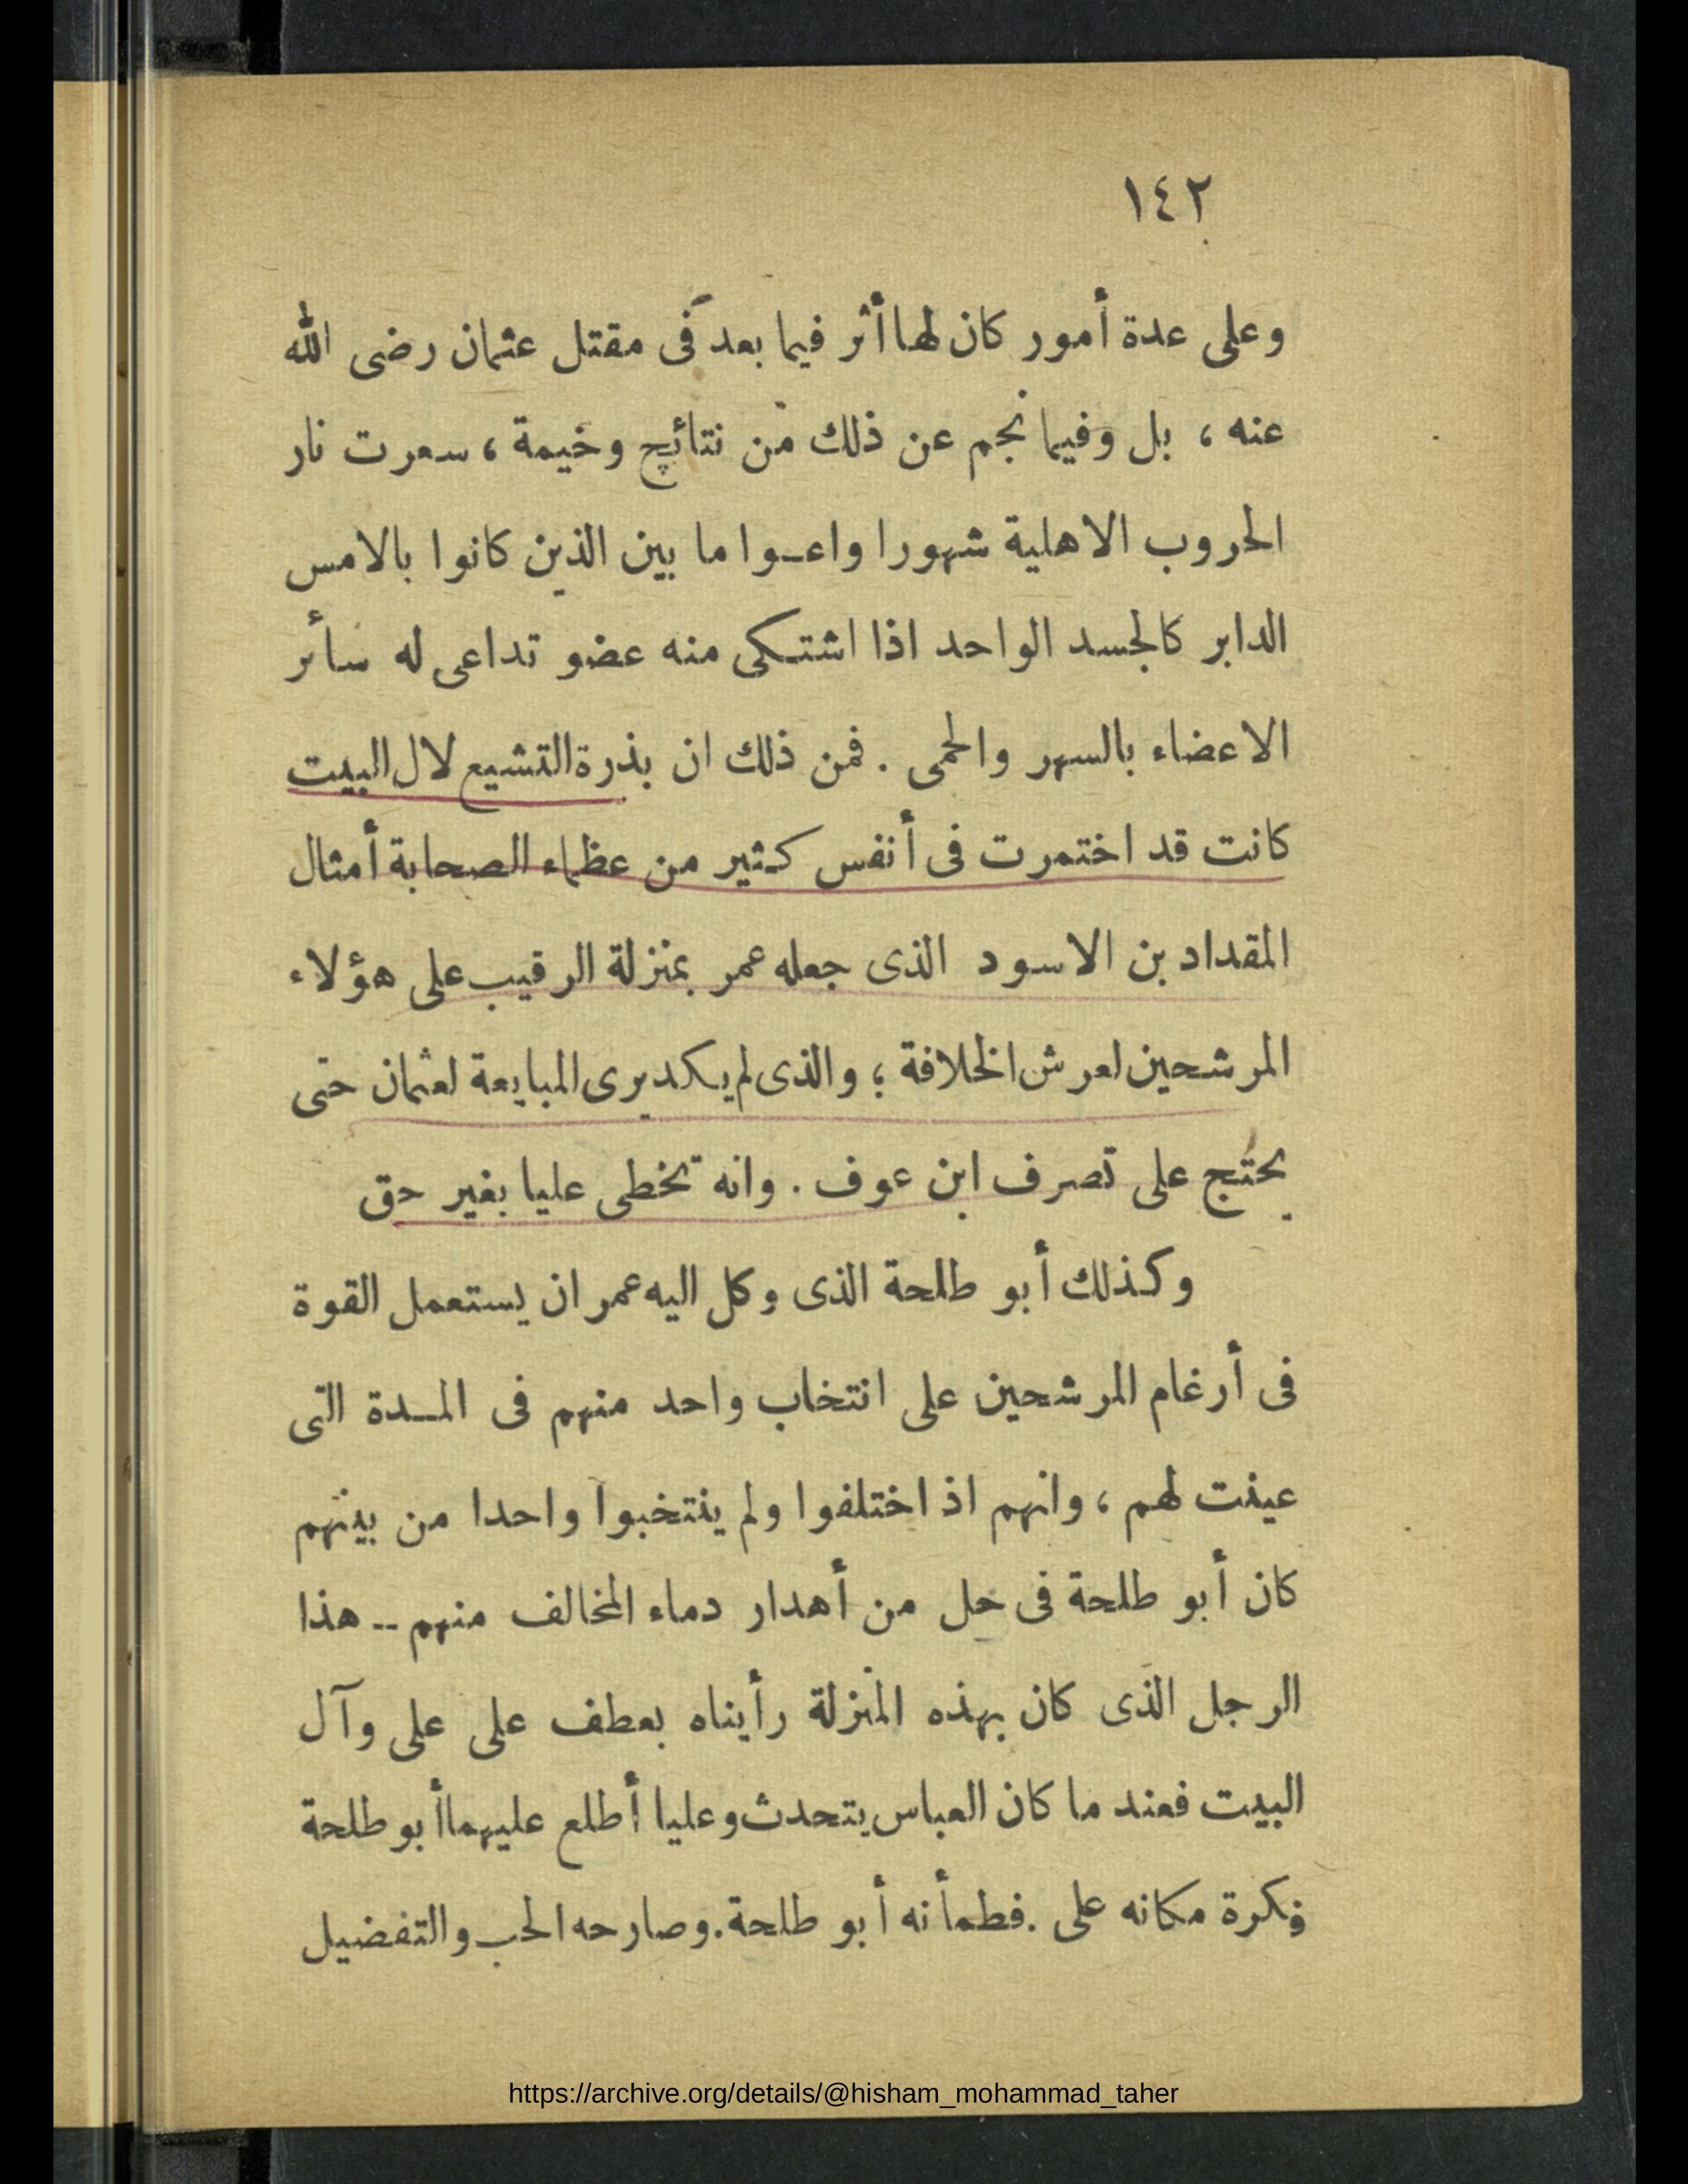 ١٤٢
وعلى عدة أمور كان لها أثر فيما بعد فى مقتل عثمان رضى الله
عنه ، بل وفيما نجم عن ذلك من نتائج وخيمة ، سعرت نار
الحروب الاهلية شهورا واعـوا ما بين الذين كانوا بالامس
الدابر كالجسد الواحد اذا اشتـكى منه عضو تداعى له سائر
الاعضاء بالسهر والحمى . فمن ذلك ان بذرة التشيع لال البيت
كانت قد اختمرت فى أنفس كثير من عظماء الصحابة أمثال
المقداد بن الاسود الذى جعله عمر بمنزلة الرقيب على هؤلاء
المرشحين لعرش الخلافة ؛ والذى لم يكد يرى المبايعة لعثمان حتى
يحتج على تصرف ابن عوف . وانه تخطى عليا بغير حق
وكذلك أبو طلحة الذى وكل اليه عمر ان يستعمل القوة
فى أرغام المرشحين على انتخاب واحد منهم فى المـدة التى
عينت لهم ، وانهم اذ اختلفوا ولم ينتخبوا واحدا من بينهم
كان أبو طلحة فى حل من أهدار دماء المخالف منهم -- هذا
الرجل الذى كان بهذه المنزلة رأيناه بعطف على على وآل
البيت فعند ما كان العباس يتحدث وعليا أطلع عليهما أبو طلحة
فكرة مكانه على . فطمأنه أبو طلحة . وصارحه الحب والتفضيل
https://archive.org/details/@hisham_mohammad_taher